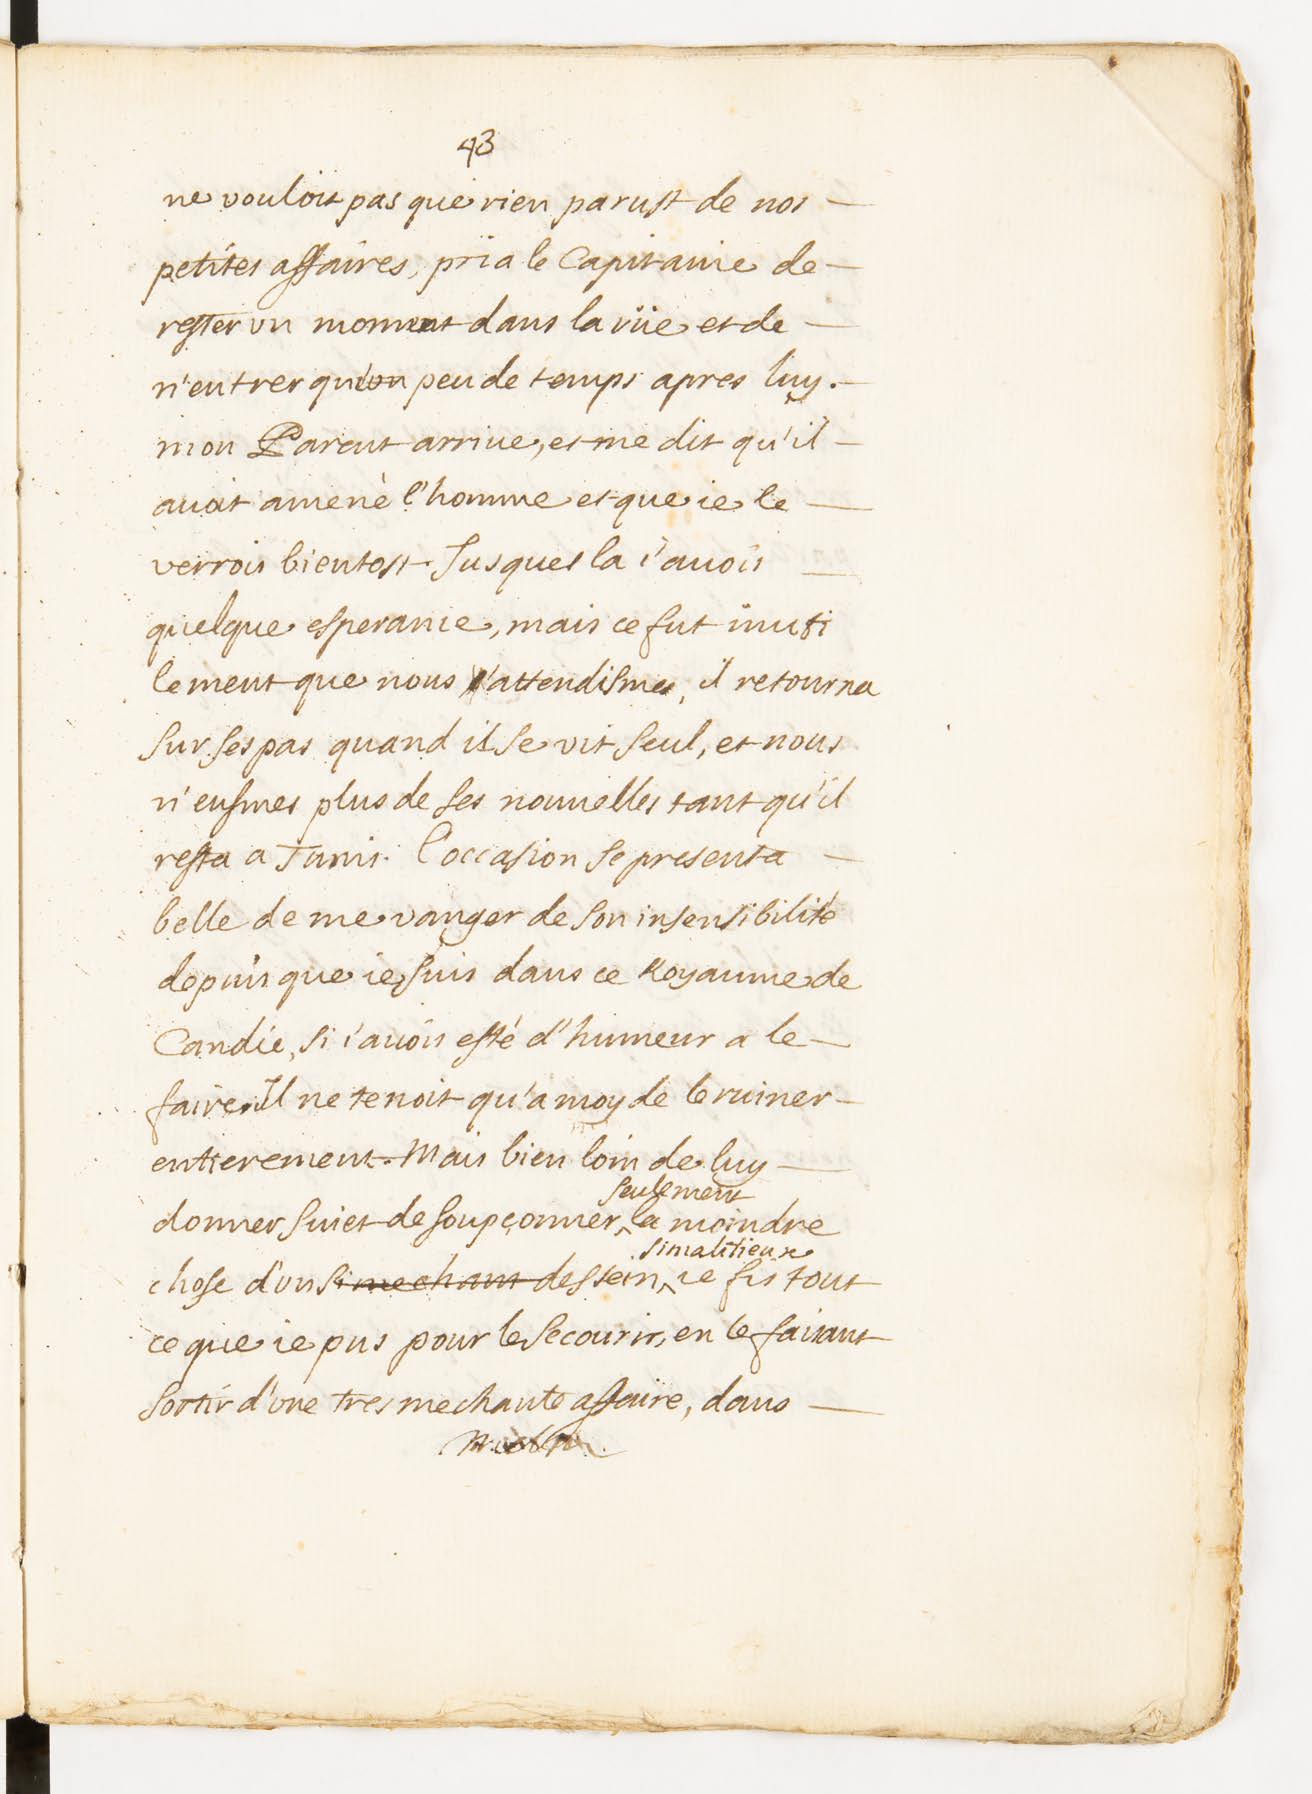 43
ne vouloit pas que rien parust de nos
petites affaires, pria le Capitaine de
rester vn moment dans la rüe et de
n'entrer qu'vn peu de temps apres luy.
mon Parent arriue, et me dit qu'il
auoit amenè l'homme et que ie le
verrois bientost. Jusques la i'auois
quelque esperance, mais ce fut inuti
lement que nous l'attendismes, il retourna
sur ses pas quand il se vit seul, et nous
n'eusmes plus de ses nouuelles tant qu'il
resta a Tunis. l'occasion se presenta
belle de me vanger de son insensibilité
depuis que ie suis dans ce Royaume de
Candie, si i'auois esté d'humeur a le
faire. Il ne tenoit qu'a moy de le ruiner
entierement. Mais bien loin de luy
donner suiet de soupçonner, seulement la moindre
chose d'vn si mechant dessein, si malitieux ie fis tout
ce que ie pus pour le secourir, en le faisant
sortir d'vne tres mechante affaire, dans